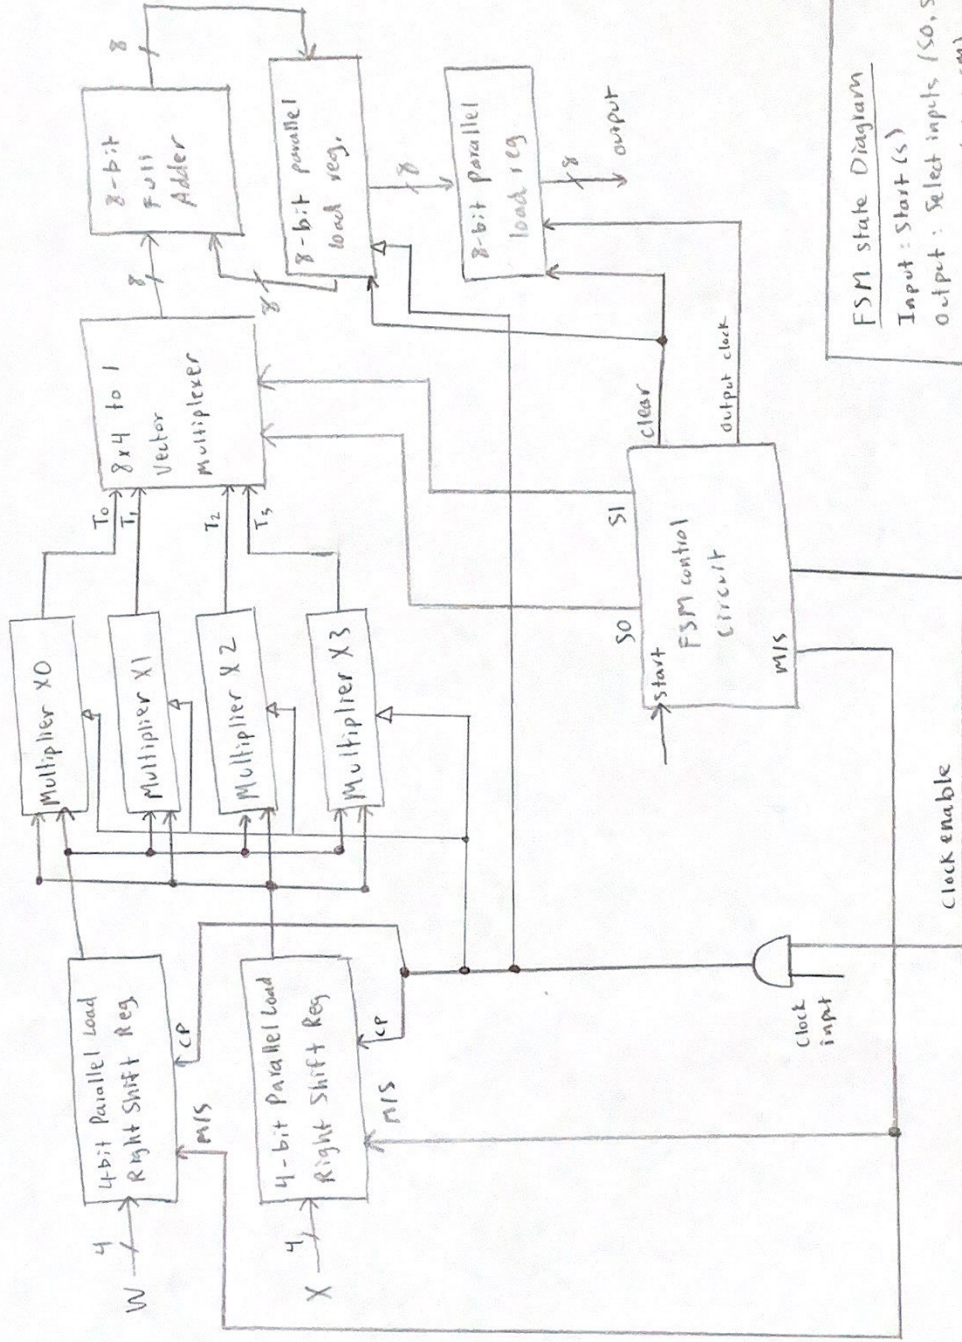 W
4
4-bit Parallel Load
Right Shift Reg
M/S
CP
X
4
4-bit Parallel Load
Right Shift Reg
M/S
CP
Multiplier X0
Multiplier X1
Multiplier X2
Multiplier X3
T0
T1
T2
8x4 to 1
Vector
Multiplexer
8
8
8-bit
Full
Adder
8
8-bit parallel
load reg.
8
8-bit parallel
load reg
8
output
Clock
input
Clock enable
start
S0
S1
FSM control
Circuit
M/S
clear
output clock
FSM state Diagram
Input: Start (s)
Output: Select inputs (S0, S